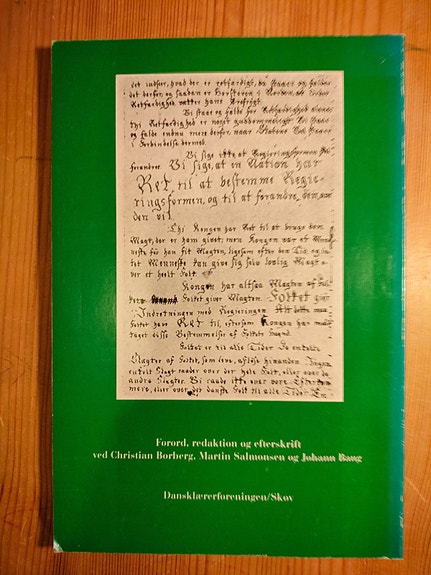 det indser, hvad der er retfærdigt, da staaer og falder
det derfor, og saadan er
Retfærdighed, rætter hans
Vi staae og falde for Retfærdighed alene,
thi Retfærdighed er noget guddommeligt. Vi staae
og falde endnu mere derfor, naar Statens Vel staaer
i Forbindelse dermed.
Vi sige ikke at Regieringsformen skal
forandres. Vi sige, at en Nation har
Ret til at bestemme Regie-
ringsformen, og til at forandre den naar
den vil.
Thi Kongen har Ret til at bruge den
Magt, der er ham givet; men Kongen var et Menne
neske før han fik Magten, ligesom efter den Tid, og in-
tet Menneske kan give sig selv lovlig Magt o-
ver et heelt Folk.
Kongen har altsaa Magten af Fol-
ket. Folket giver Magten. Folket giør
Indretningen med Regieringen.
Folket have Ret til, eftersom Kongen har mod-
taget disse Bestemmelser af Folkets Haand.
Folket er til alle Tider De omtalte
Magter af Folket, som leve, afløse hinanden. Ingen
enkelt Slægt raader over det hele Folk, eller over de
andre Slægter. Vi raade ikke over vore Efterkom-
mere, eller over det danske Folk til alle Tider. En
Forord, redaktion og efterskrift
ved Christian Borberg, Martin Salmonsen og Johann Bang
Dansklærerforeningen/Skov